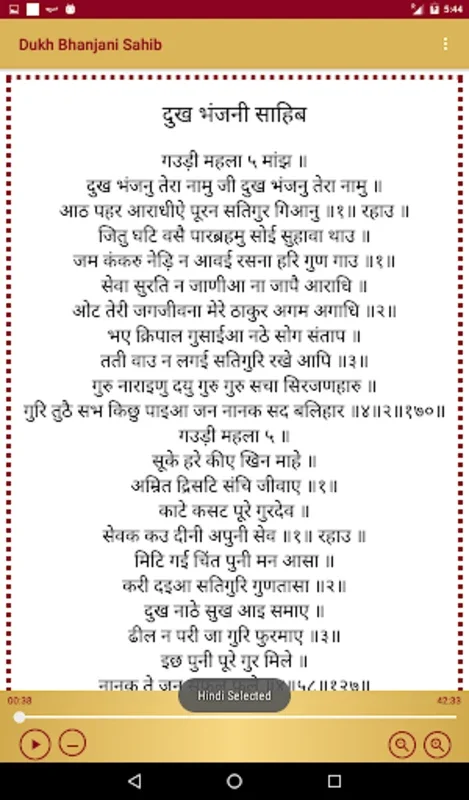 5:44
Dukh Bhanjani Sahib
दुख भंजनी साहिब
गउड़ी महला ५ मांझ ॥
दुख भंजनु तेरा नामु जी दुख भंजनु तेरा नामु ॥
आठ पहर आराधीऐ पूरन सतिगुर गिआनु ॥१॥ रहाउ ॥
जितु घटि वसै पारब्रहमु सोई सुहावा थाउ ॥
जम कंकरु नेड़ि न आवई रसना हरि गुण गाउ ॥१॥
सेवा सुरति न जाणीआ ना जापै आराधि ॥
ओट तेरी जगजीवना मेरे ठाकुर अगम अगाधि ॥२॥
भए क्रिपाल गुसाईआ नठे सोग संताप ॥
तती वाउ न लगई सतिगुरि रखे आपि ॥३॥
गुरु नाराइणु दयु गुरु गुरु सचा सिरजणहारु ॥
गुरि तुठै सभ किछु पाइआ जन नानक सद बलिहार ॥४॥२॥१७०॥
गउड़ी महला ५ ॥
सूके हरे कीए खिन माहे ॥
अम्रित द्रिसटि संचि जीवाए ॥१॥
काटे कसट पूरे गुरदेव ॥
सेवक कउ दीनी अपुनी सेव ॥१॥ रहाउ ॥
मिटि गई चिंत पुनी मन आसा ॥
करी दइआ सतिगुरि गुणतासा ॥२॥
दुख नाठे सुख आइ समाए ॥
ढील न परी जा गुरि फुरमाए ॥३॥
इछ पुनी पूरे गुर मिले ॥
नानक ते जन सुफल फले ॥४॥५८॥१२७॥
Hindi Selected
00:38 42:33